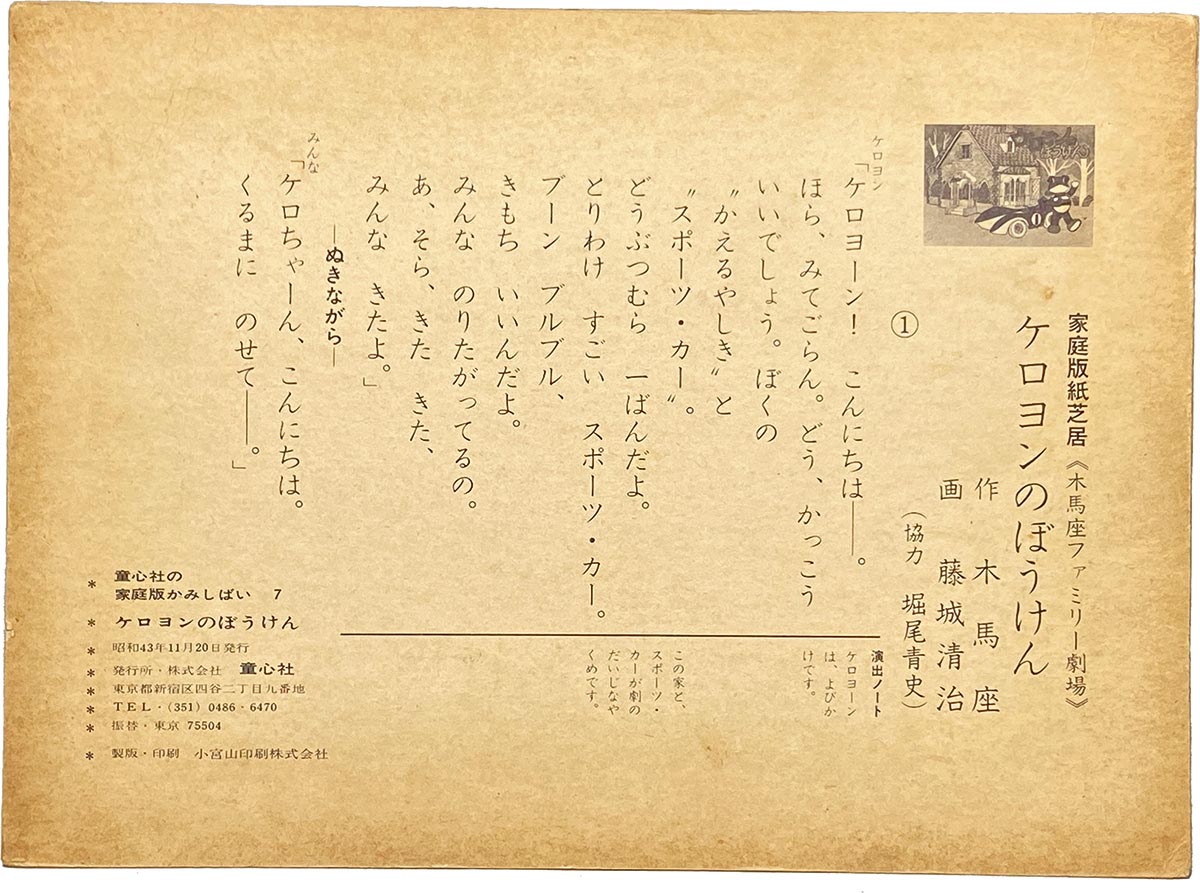 家庭版紙芝居《木馬座ファミリー劇場》
ケロヨンのぼうけん
作 木馬座
画 藤城清治
（協力 堀尾青史）
①
ケロヨン
「ケロヨーン！ こんにちは――。
ほら、みてごらん。どう、かっこう
いいでしょう。ぼくの
〝かえるやしき〟と
〝スポーツ・カー〟。
どうぶつむら 一ばんだよ。
とりわけ すごい スポーツ・カー。
ブーン ブルブル、
きもち いいんだよ。
みんな のりたがってるの。
あ、そら、きた きた、
みんな きたよ。」
―ぬきながら―
みんな
「ケロちゃーん、こんにちは。
くるまに のせて――。」
演出ノート
ケロヨーン
は、よびか
けです。
この家と、
スポーツ・
カーが劇の
だいじなや
くめです。
* 童心社の
家庭版かみしばい 7
* ケロヨンのぼうけん
* 昭和43年11月20日発行
* 発行所・株式会社 童心社
* 東京都新宿区四谷二丁目九番地
* TEL・(351) 0486・6470
* 振替・東京 75504
* 製版・印刷 小宮山印刷株式会社